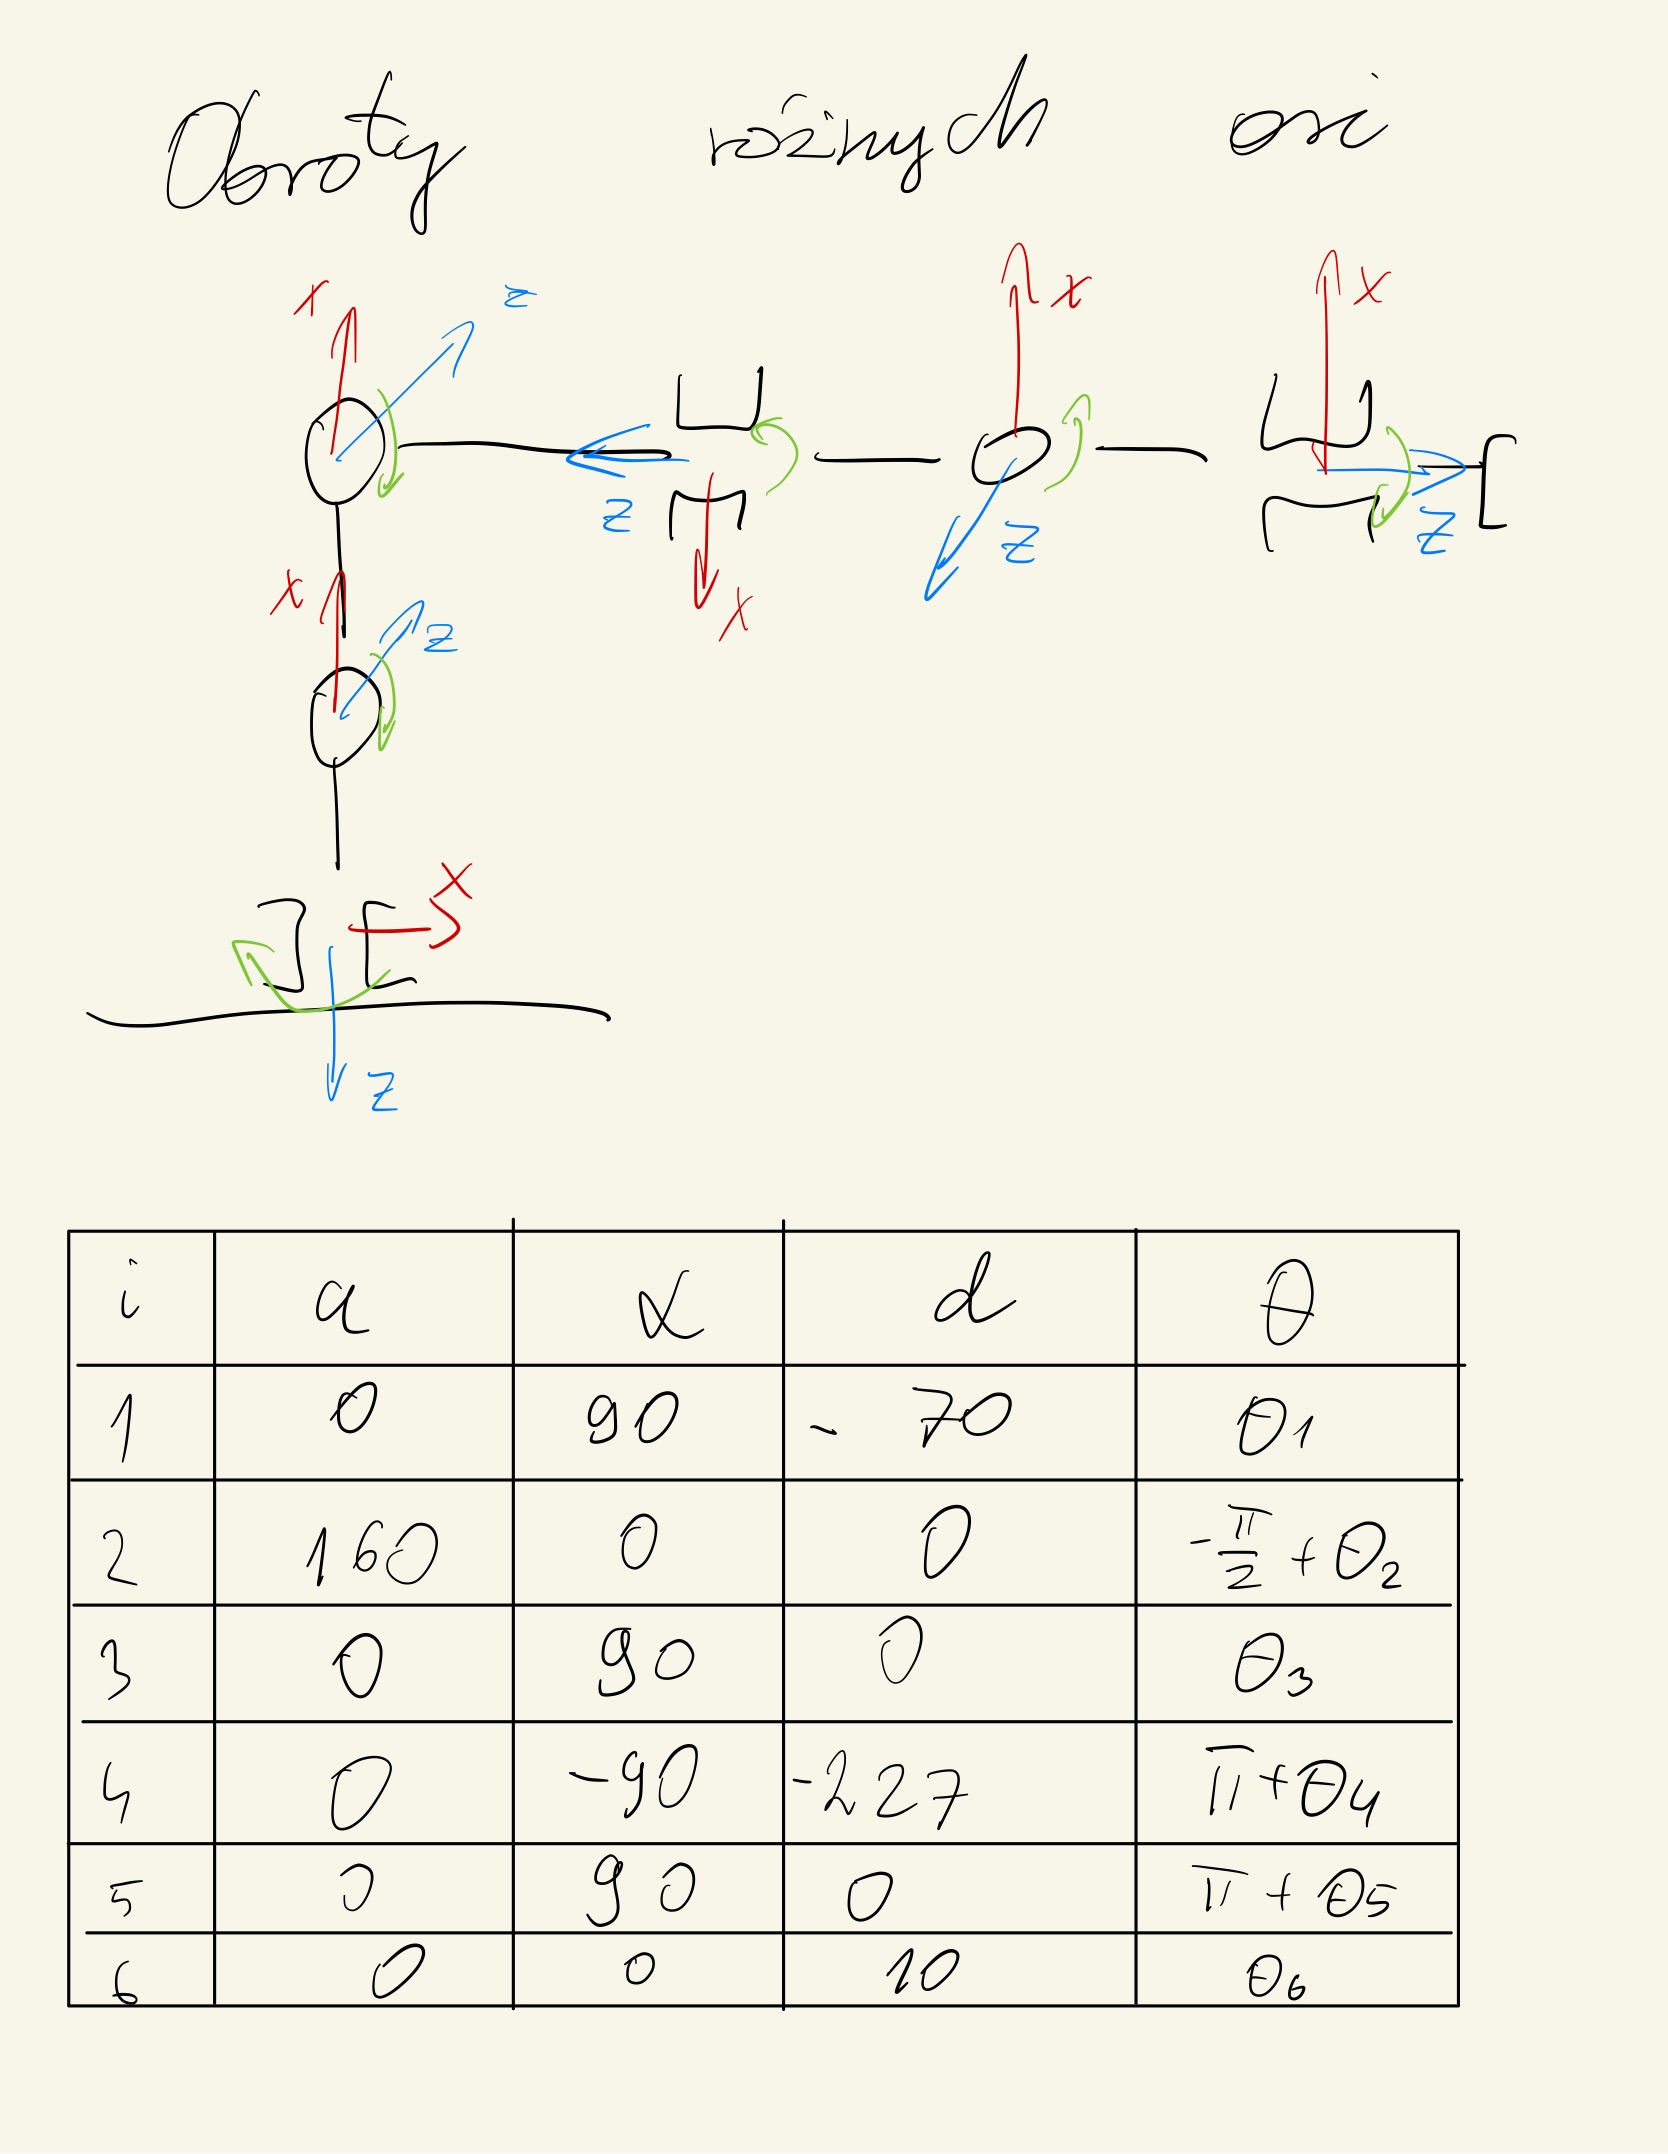 Obroty różnych osi
x z x x
z z
x
x z
x
z
i a α d θ
1 0 90 - 70 θ1
2 160 0 0 -π/2 + θ2
3 0 90 0 θ3
4 0 -90 -227 π+θ4
5 0 90 0 π + θ5
6 0 0 10 θ6